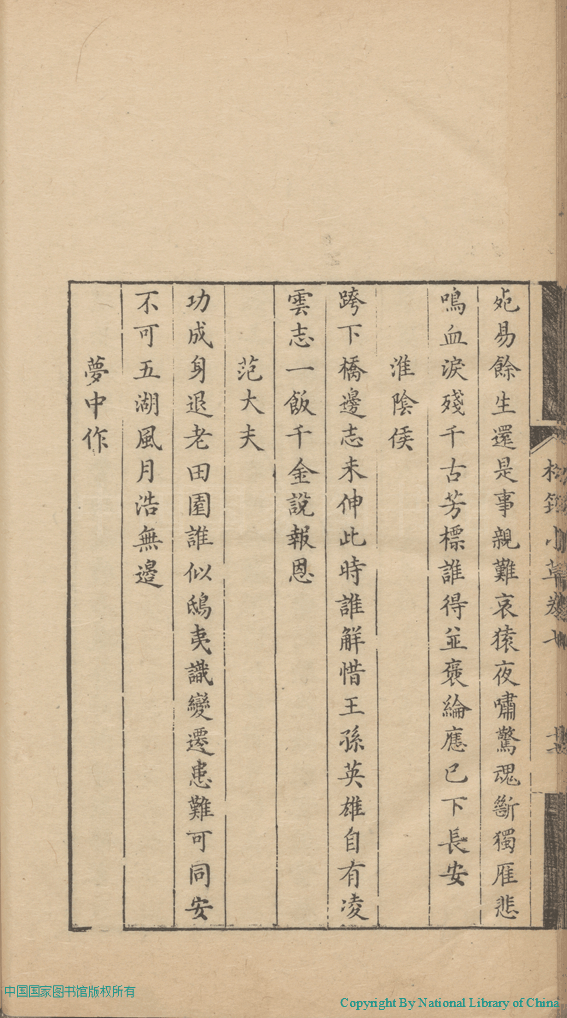 易餘生還是事親難哀猿夜嘯驚魂斷獨雁悲
鳴血淚殘千古芳標誰得並褒綸應已下長安
淮陰侯
跨下橋邊志未伸此時誰解惜王孫英雄自有凌
雲志一飯千金說報恩
范大夫
功成身退老田園誰似鴟夷識變遷患難可同安
不可五湖風月浩無邊
夢中作
中国国家图书馆版权所有
Copyright By National Library of China